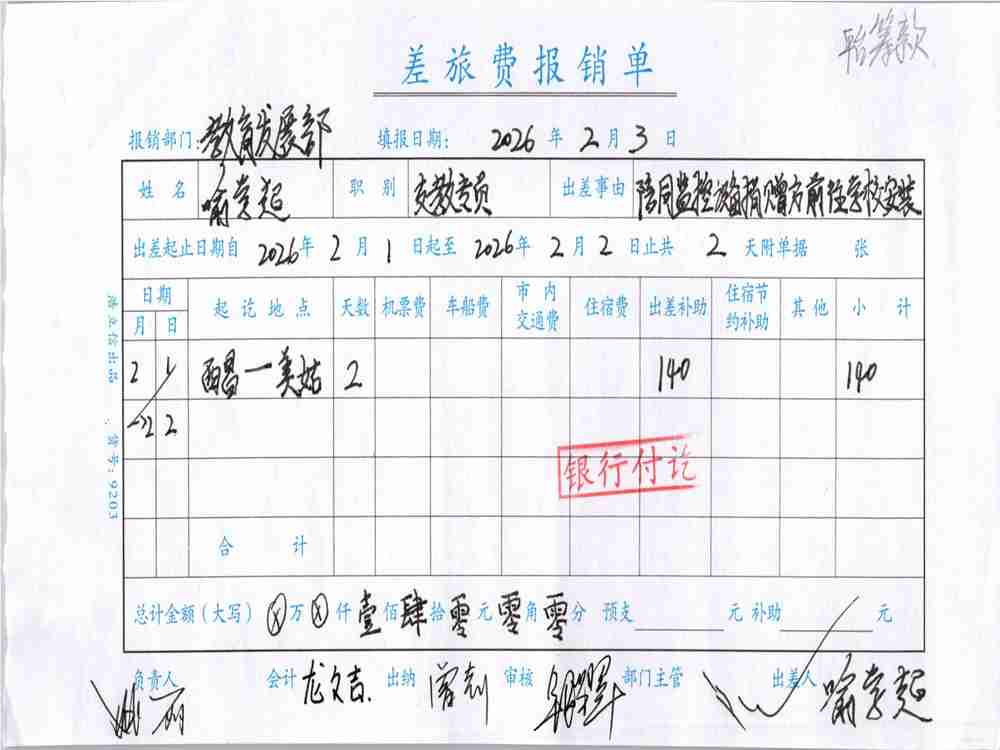 差旅费报销单
报销部门：教育发展部 填报日期： 2026 年 2 月 3 日
姓 名 喻学起 职 别 支教专员 出差事由 陪同监控设备捐赠方前往学校安装
出差起止日期自 2026 年 2 月 1 日起至 2026 年 2 月 2 日止共 2 天附单据 张
日期 起 讫 地 点 天数 机票费 车船费 市 内 交通费 住宿费 出差补助 住宿节约补助 其 他 小 计
月 日
2 1 西昌一美姑 2 140 140
2 2
银行付讫
合 计
总计金额（大写） ⓧ 万 ⓧ 仟 壹 佰 肆 拾 零 元 零 角 零 分 预支 元 补助 元
负责人 会计 龙文吉 出纳 审核 部门主管 出差人 喻学起
货号：9203